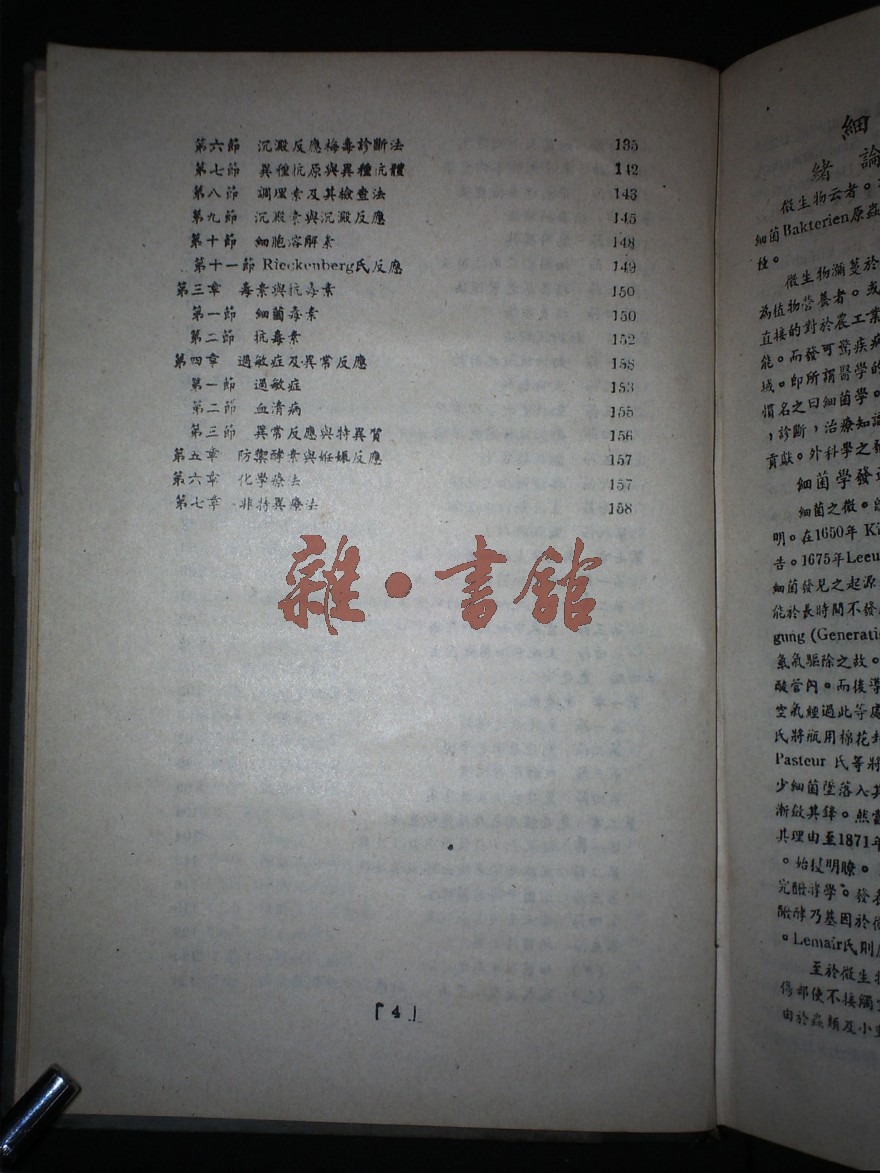 第六節 沉澱反應梅毒診斷法 135
第七節 異種抗原與異種抗體 142
第八節 調理素及其檢查法 143
第九節 沉澱素與沉澱反應 145
第十節 細胞溶解素 148
第十一節 Rieckenberg氏反應 149
第三章 毒素與抗毒素 150
第一節 細菌毒素 150
第二節 抗毒素 152
第四章 過敏症及異常反應 153
第一節 過敏症 153
第二節 血清病 155
第三節 異常反應與特異質 156
第五章 防禦酵素與妊娠反應 157
第六章 化學療法 157
第七章 非特異療法 158
雜·書館
「4」
細
緒論
微生物云者。
細菌Bakterien原蟲
性。
微生物瀰蔓於
為植物營養者。或
直接的對於農工業
能。而發可驚疾病
域。即所謂醫學的
慣名之曰細菌學。
，診斷，治療知識
貢獻。外科學之發
細菌學發
細菌之微。
明。在1650年 Ki
告。1675年Leeu
細菌發見之起源
能於長時間不發
gung (Generati
氣驅除之故。
酸管內。而後導
空氣經過此等處
氏將瓶用棉花
Pasteur 氏等將
少細菌墜落入其
漸斂其鋒。然
其理由至1871年
。始得明瞭。
究醱酵學。發表
醱酵乃基因於
。Lemair氏則
至於微生物
傷部使不接觸
由於蟲類及小